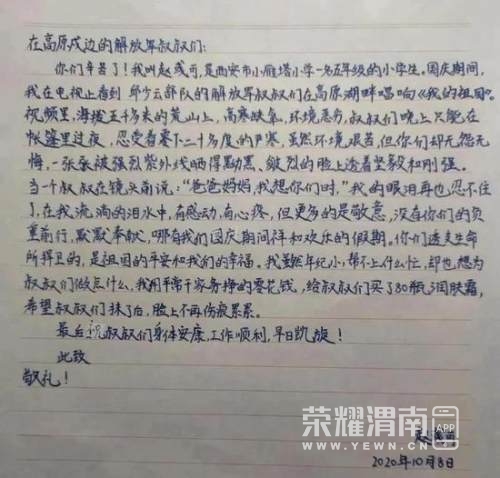 在高原戍边的解放军叔叔们:
你们辛苦了!我叫赵彧可,是西安市小雁塔小学一名五年级的小学生。国庆期间,
我在电视上看到邱少云部队的解放军叔叔们在高原湖畔唱响《我的祖国》
视频里,海拔五千多米的荒山上,高寒缺氧,环境恶劣,叔叔们晚上只能在
帐篷里过夜,忍受着零下二十多度的严寒,虽然环境艰苦,但你们却无怨无
悔,一张张被强烈紫外线晒得黝黑、皴裂的脸上透着坚毅和刚强。
当一个叔叔在镜头前说:“爸爸妈妈,我想你们时,”我的眼泪再也忍不住
了,在我流淌的泪水中,有感动,有心疼,但更多的是敬意,没有你们的负
重前行,默默奉献,哪有我们国庆期间祥和欢乐的假期。你们透支生命
所捍卫的,是祖国的平安和我们的幸福。我虽然年纪小,帮不上什么忙,却也想为
叔叔们做点什么,我用平常干家务挣的零花钱,给叔叔们买了80瓶润肤霜,
希望叔叔们抹了后,脸上不再伤痕累累。
最后祝叔叔们身体安康,工作顺利,早日凯旋!
此致
敬礼!
荣耀渭南 APP
WWW.YEWN.CN
2020年10月8日